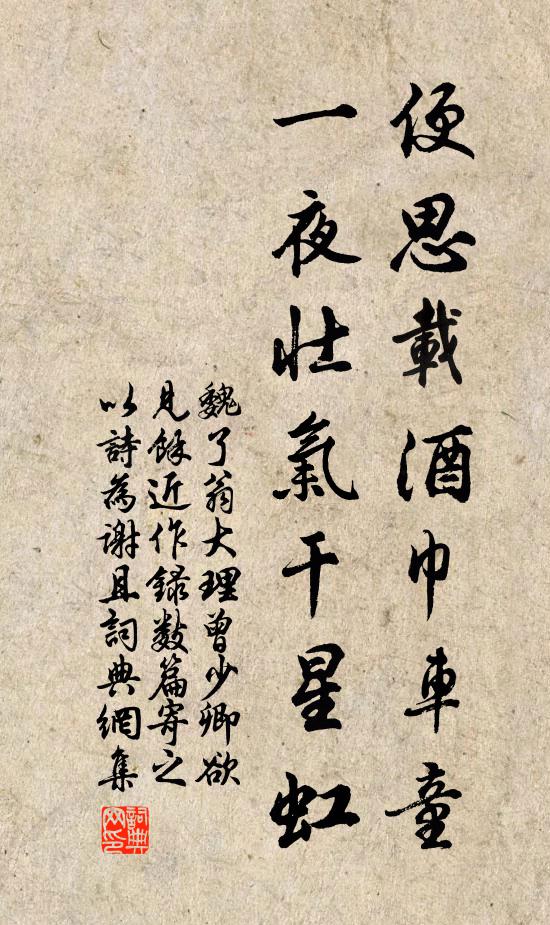 便思載酒巾車童
一夜壯氣干星虹
魏了翁大理曾少卿欲
見餘近作録数篇寄之
以詩為謝且詞典網集
詞典
网印